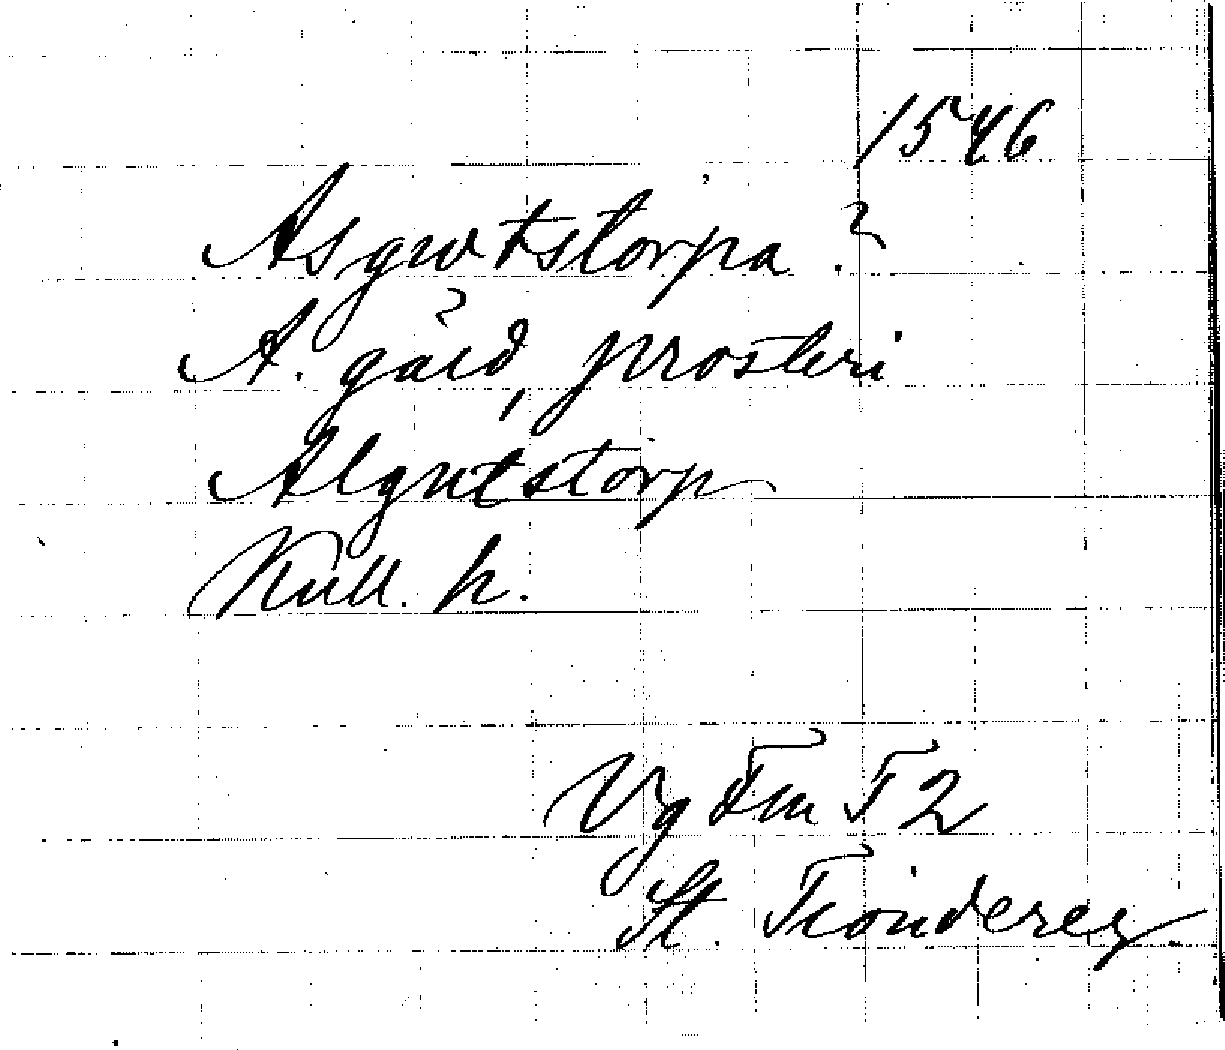 1546
Asgutstorpa ?
A. gård, prosteri
Algutstorp
Kull. h.
Vg Fm T 2
St.